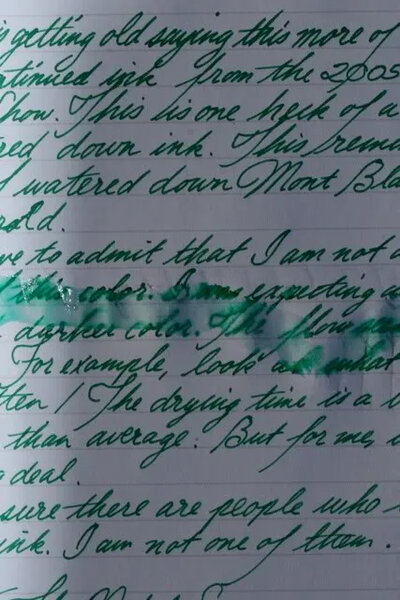 getting old saying this more of
ntinued ink from the 2005
Show. This is one heck of a
red down ink. This
watered down Mont Bla
ve to admit that I am not a
this color. I was expecting a
darker color. The flow
For example, look at what
tten / The drying time is a
than average. But for me,
deal.
sure there are people who
ink. I am not one of them.